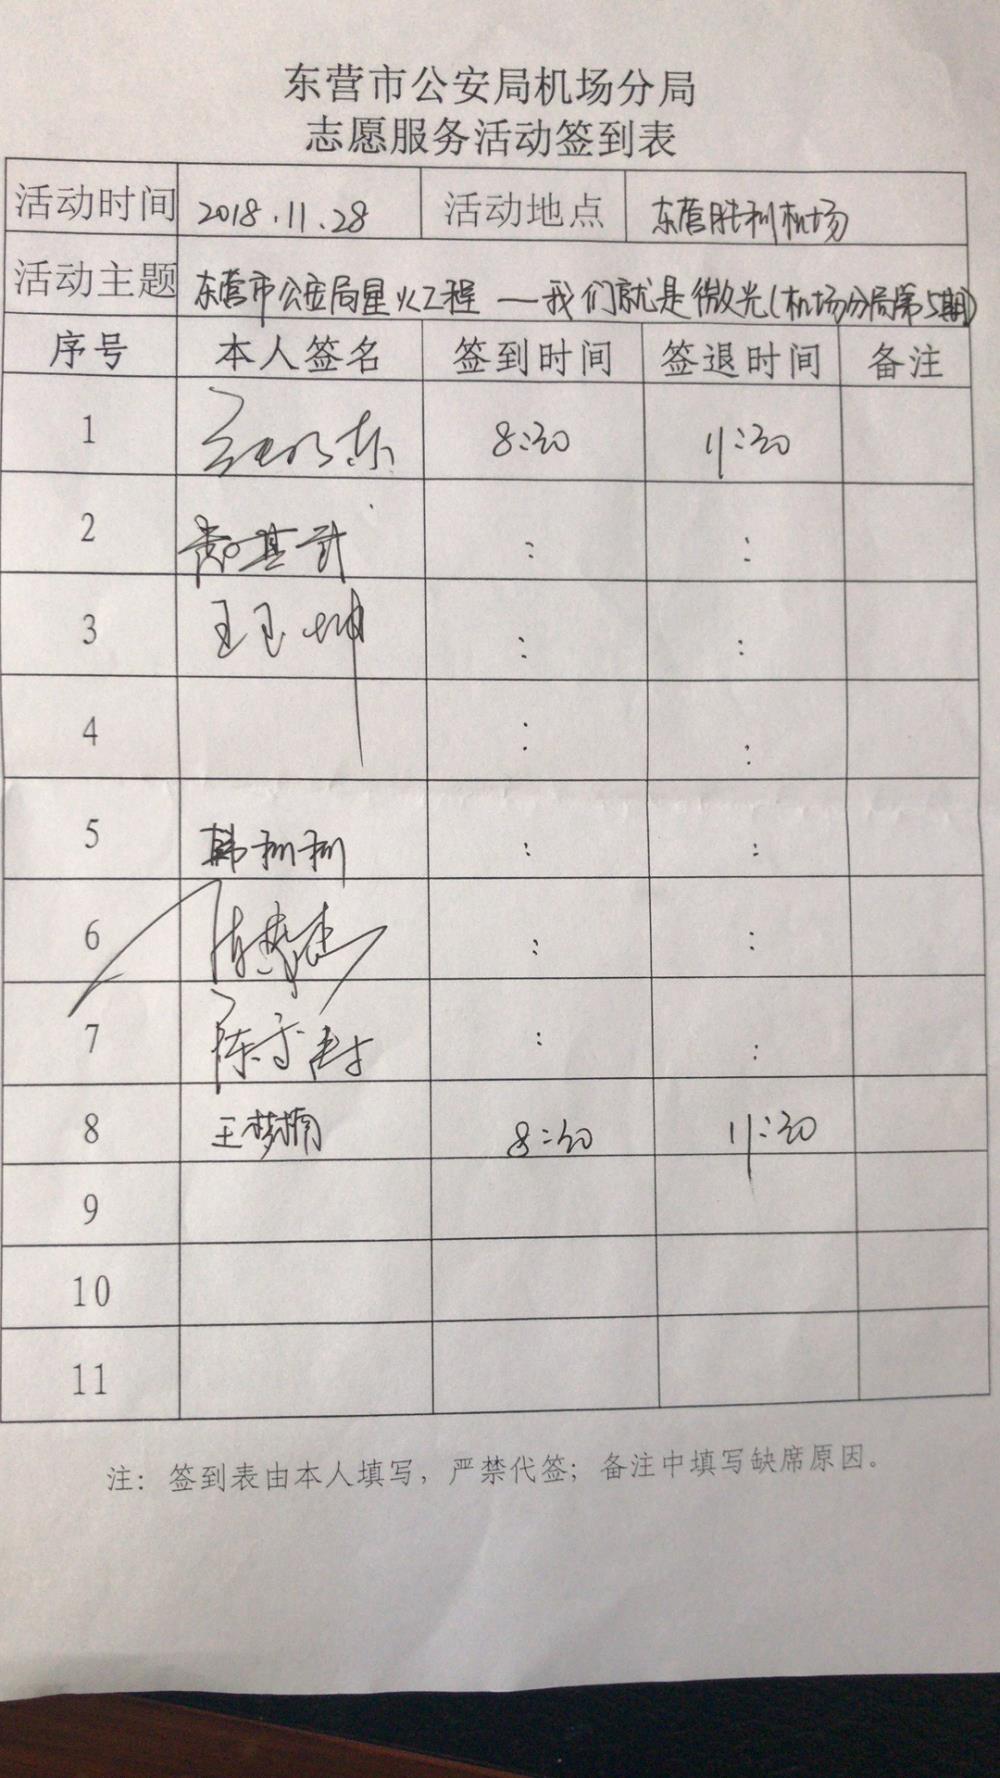 东营市公安局机场分局
志愿服务活动签到表
活动时间 2018.11.28 活动地点 东营胜利机场
活动主题 东营市公安局星火工程——我们就是微光(机场分局第5期)
序号 本人签名 签到时间 签退时间 备注
1 8:30 11:30
2 : :
3 王玉坤 : :
4 : :
5 韩利利 : :
6 : :
7 陈 : :
8 王梦楠 8:30 11:30
9
10
11
注：签到表由本人填写，严禁代签；备注中填写缺席原因。